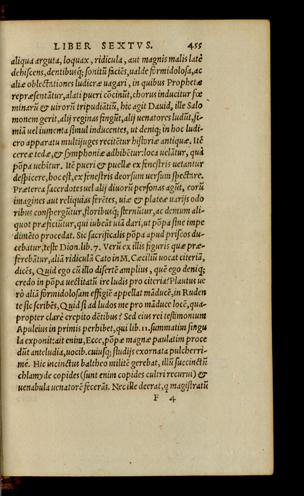 LIBER SEXTVS. 455
aliqua arguta, loquax, ridicula, aut magnis malis latè
dehiscens, dentibusq́; sonitũ faciẽs, ualde formidolosa, ac
aliæ oblectationes ludicræ uagari, in quibus Prophetæ
repræsentãtur, alati pueri cõcinũt, chorus inducitur fœ
minarũ & uirorũ tripudiãtiũ, hic agit Dauid, ille Salo
monem gerit, alij reginas fingũt, alij uenatores ludũt, si-
mià uel iumenta simul inducentes, ut deniq; in hoc ludi-
cro apparatu multijuges recitẽtur historiæ antiquæ. Itẽ
cereæ tedæ, & symphoniæ adhibẽtur: loca uelãtur, quà
põpa uehitur. Itẽ pueri & puellæ ex fenestris uetantur
despicere, hoc est, ex fenestris deorsum uersum spectare.
Præterea sacerdotes uel alij diuorũ personas agũt, corũ
imagines aut reliquias ferẽtes, uiæ & plateæ uarijs odo
ribus conspergũtur, floribusq́; sternũtur, ac demum ali-
quot præficiũtur, qui iubeãt uià dari, ut põpa sine impe
dimẽto procedat. Sic sacrificalis põpa apud priscos du-
cebatur, teste Dion. lib. 7. Verũ ex illis figuris quæ præ-
ferebãtur, alià ridiculã Cato in M. Cæciliũ uocat citeriã,
dicẽs, Quid ego cũ illo dissertẽ amplius, quẽ ego deniq;
credo in põpa uectitatũ ire ludis pro citeria? Plautus ue
rò aliã formidolosam effigiẽ appellat mãducẽ, in Ruden
te sic scribẽs, Quid si ad ludos me pro mãduce locẽ, qua-
propter clarè crepito dẽtibus? Sed eius rei testimonium
Apuleius in primis perhibet, qui lib. 11. summatim singu
la exponit: ait enim, Ecce, põpæ magnæ paulatim proce
dũt anteludia, uocib. cuiusq; studijs exornata pulcherri-
mè. Hic incinctus baltheo militẽ gerebat, illũ succinctũ
chlamyde copides (sunt enim copides cultri recurui) &
uenabula uenatorẽ fecerãt. Nec ille deerat, q̃ magistratũ
F 4